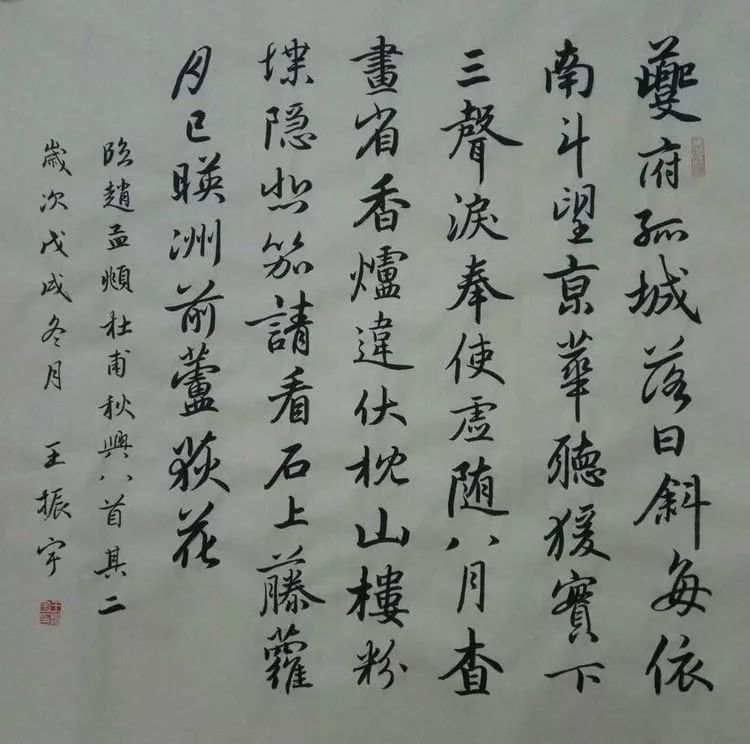 夔府孤城落日斜每依
南斗望京華聽猨實下
三聲淚奉使虛随八月查
畫省香爐違伏枕山樓粉
堞隐悲笳請看石上藤蘿
月已暎洲前蘆荻花
臨趙孟頫杜甫秋興八首其二
歲次戊戌冬月 王振宇